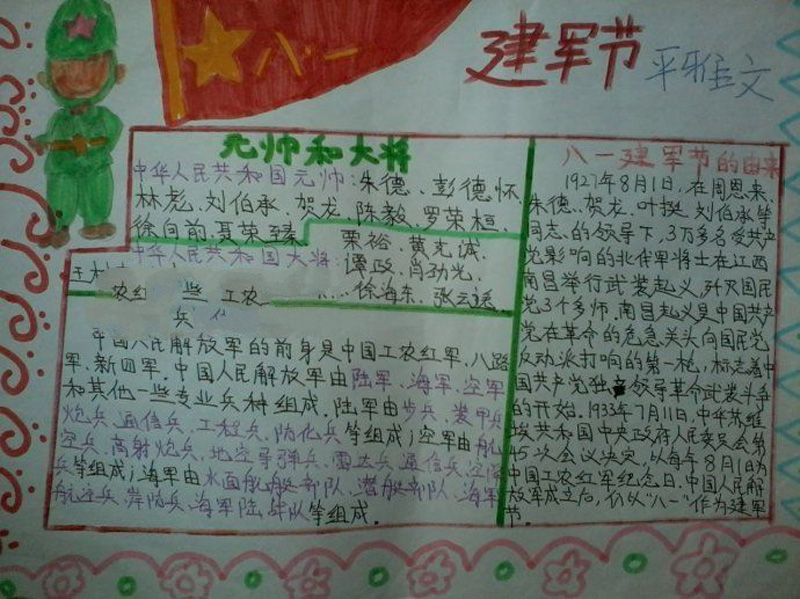 八一
建军节
平雅文
元帅和大将
中华人民共和国元帅:朱德、彭德怀
林彪、刘伯承、贺龙、陈毅、罗荣桓、
徐向前、聂荣臻
中华人民共和国大将:
粟裕、黄克诚、
谭政、肖劲光、
……徐海东、张云逸
农红 些 工农
兵
中国人民解放军的前身是中国工农红军、八路
军、新四军,中国人民解放军由陆军、海军、空军
和其他一些专业兵种组成.陆军由步兵、装甲兵
炮兵、通信兵、工程兵、防化兵等组成;空军由航
空兵、高射炮兵、地空导弹兵、雷达兵通信兵、空降
兵等组成;海军由水面舰艇部队、潜艇部队、海军
航空兵、岸防兵、海军陆战队等组成.
八一建军节的由来
1927年8月1日,在周恩来、
朱德、贺龙、叶挺、刘伯承等
同志的领导下,3万多名受共产
党影响的北伐军将士在江西
南昌举行武装起义,歼灭国民
党3个多师.南昌起义是中国共产
党在革命的危急关头向国民党
反动派打响的第一枪,标志着中
国共产党独立领导革命武装斗争
的开始.1933年7月11日,中华苏维
埃共和国中央政府人民委员会第
45次会议决定,以每年8月1日为
中国工农红军纪念日.中国人民解
放军成立后,仍以“八一”作为建军
节.